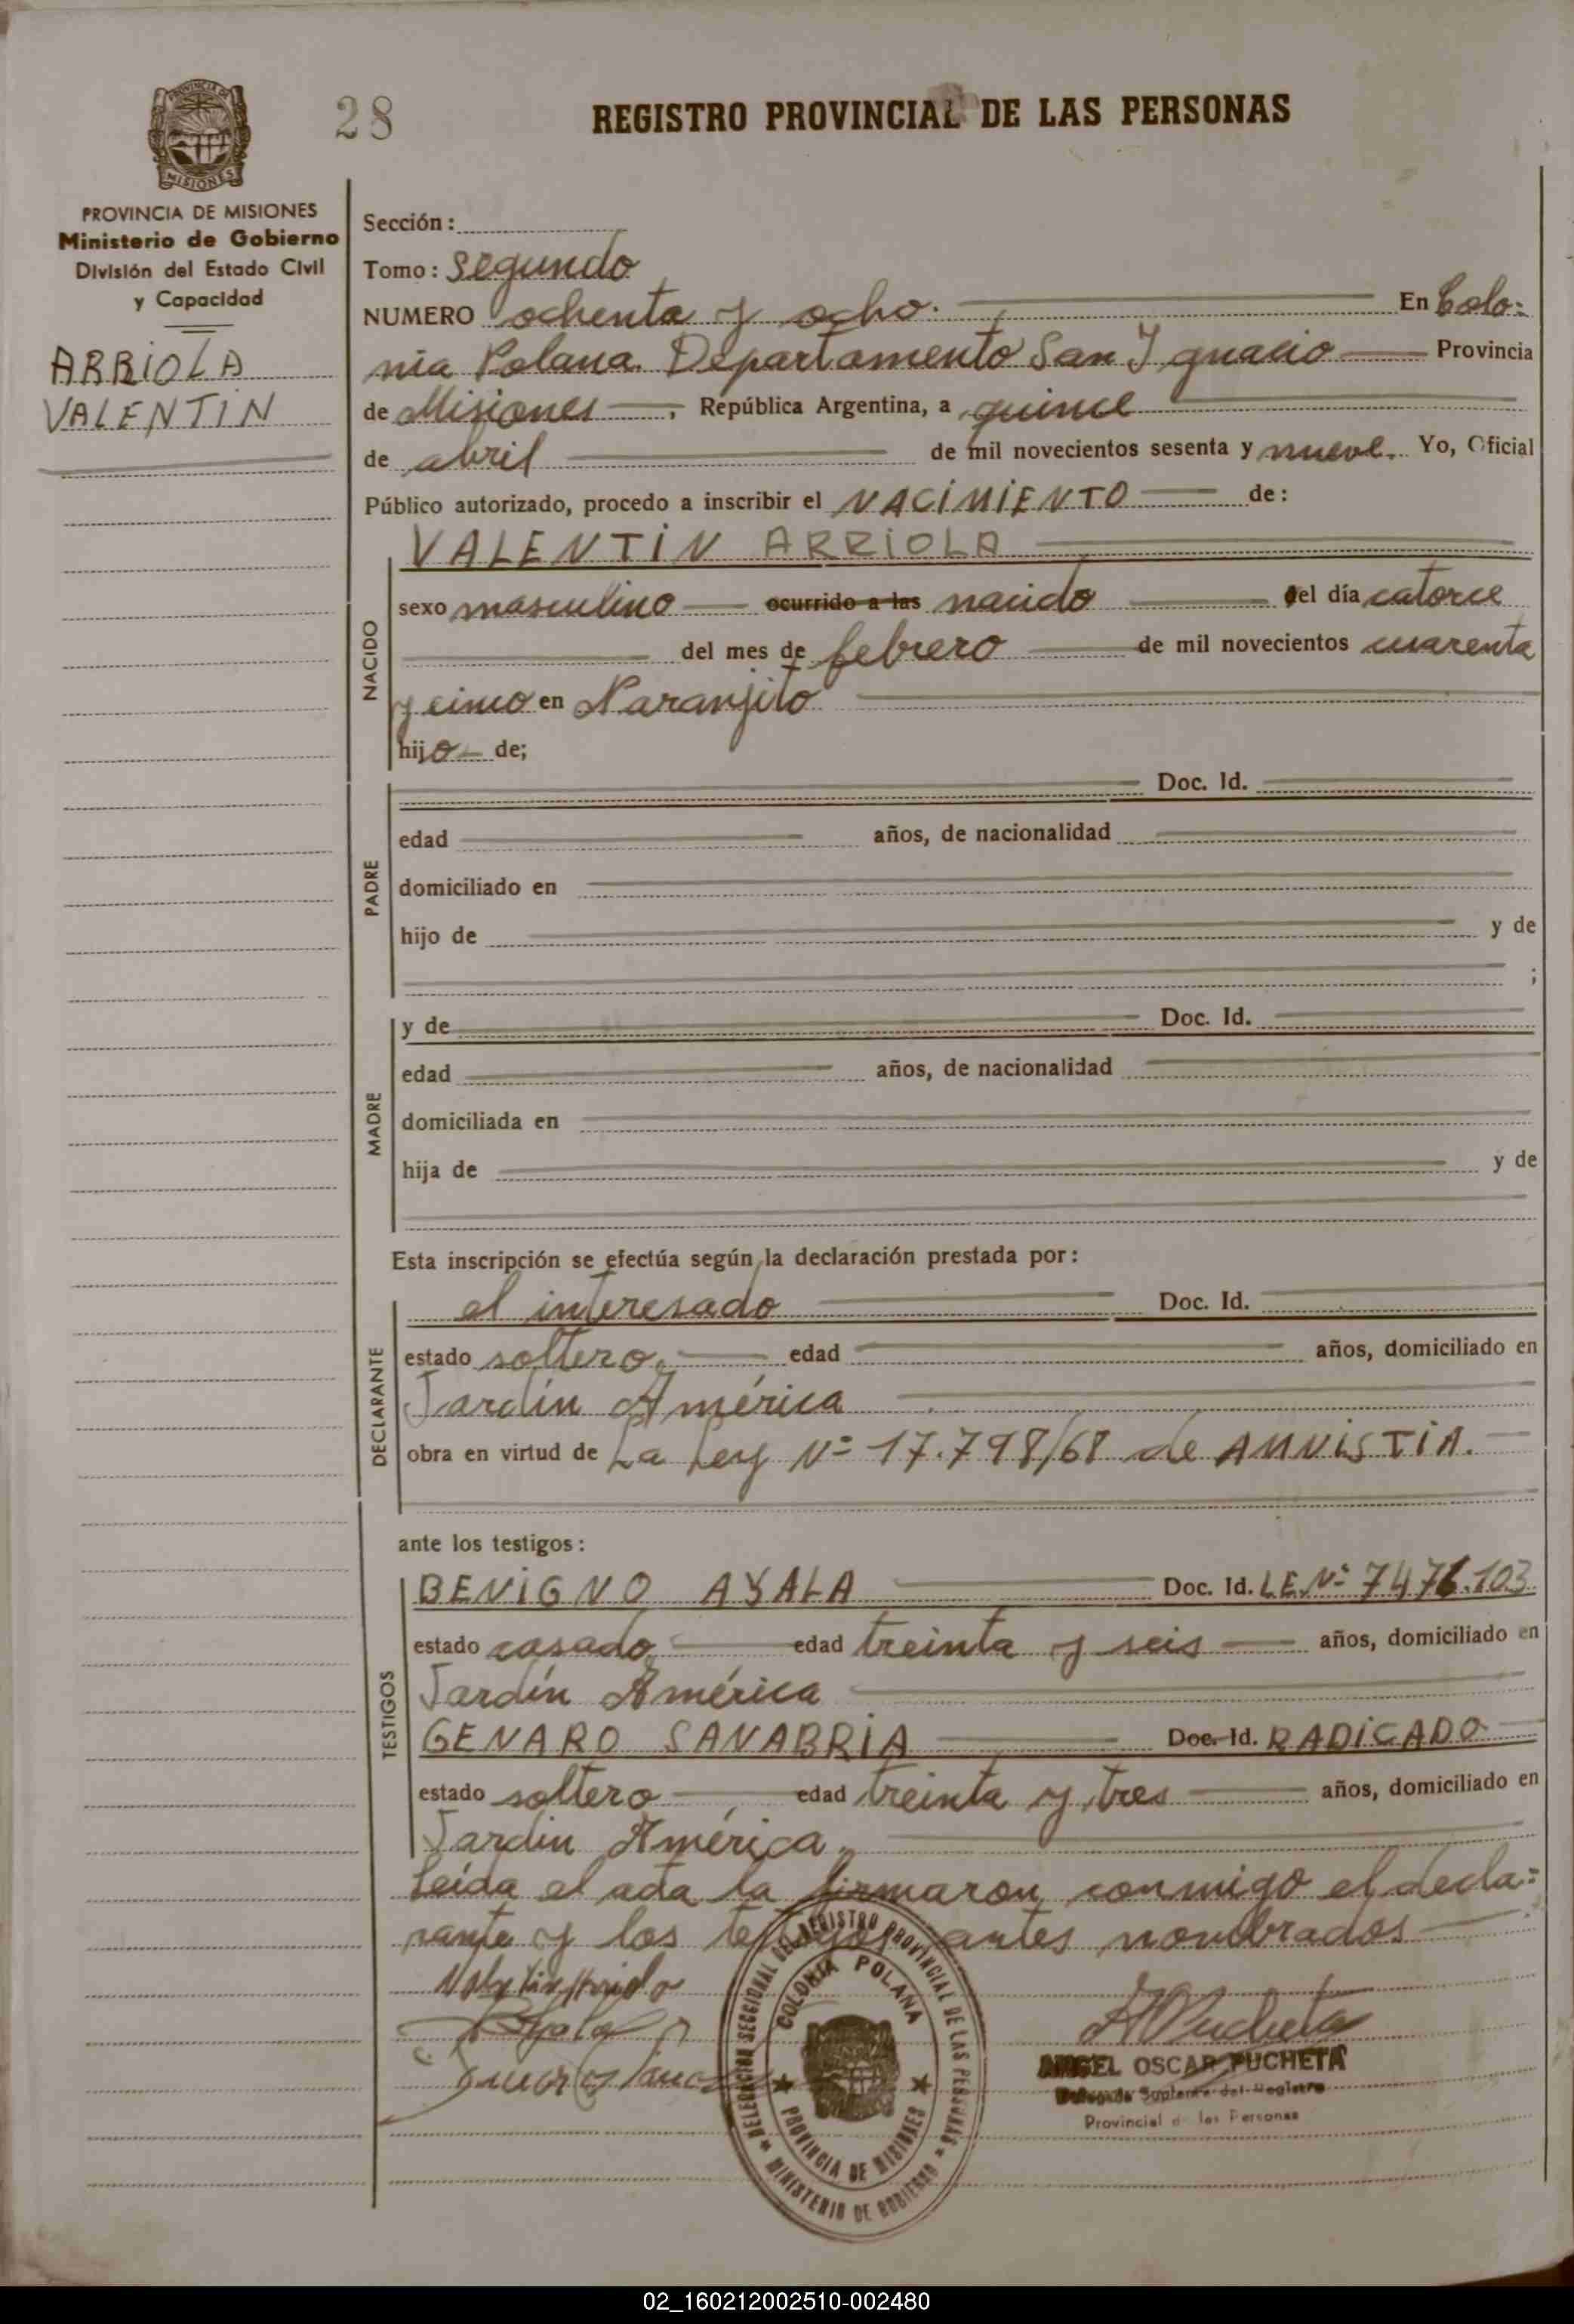 28
REGISTRO PROVINCIAL DE LAS PERSONAS
PROVINCIA DE
MISIONES
PROVINCIA DE MISIONES
Ministerio de Gobierno
División del Estado Civil
y Capacidad
ARRIOLA
VALENTIN
Sección:
Tomo: Segundo
NUMERO ochenta y ocho. En Colo=
nia Polana. Departamento San Ignacio Provincia
de Misiones, República Argentina, a quince
de abril de mil novecientos sesenta y nueve. Yo, Oficial
Público autorizado, procedo a inscribir el NACIMIENTO de:
VALENTIN ARRIOLA
NACIDO
sexo masculino ocurrido a las nacido el día catorce
del mes de febrero de mil novecientos cuarenta
y cinco en Naranjito
hijo de;
PADRE
Doc. Id.
edad años, de nacionalidad
domiciliado en
hijo de y de
;
MADRE
y de Doc. Id.
edad años, de nacionalidad
domiciliada en
hija de y de
Esta inscripción se efectúa según la declaración prestada por:
DECLARANTE
el interesado Doc. Id.
estado soltero. edad años, domiciliado en
Jardín América
obra en virtud de La Ley Nº 17.798/68 de AMNISTIA.
ante los testigos:
TESTIGOS
BENIGNO AYALA Doc. Id. L.E. Nº 7476.103
estado casado edad treinta y seis años, domiciliado en
Jardín América
GENARO SANABRIA Doc. Id. RADICADO
estado soltero edad treinta y tres años, domiciliado en
Jardin América.
Leída el acta la firmaron conmigo el decla=
rante y los testigos antes nombrados
DELEGACION SECCIONAL DEL REGISTRO PROVINCIAL DE LAS PERSONAS
COLONIA POLANA
PROVINCIA DE MISIONES
MINISTERIO DE GOBIERNO
ANGEL OSCAR PUCHETA
Delegado Suplente del Registro
Provincial de las Personas
02_160212002510-002480